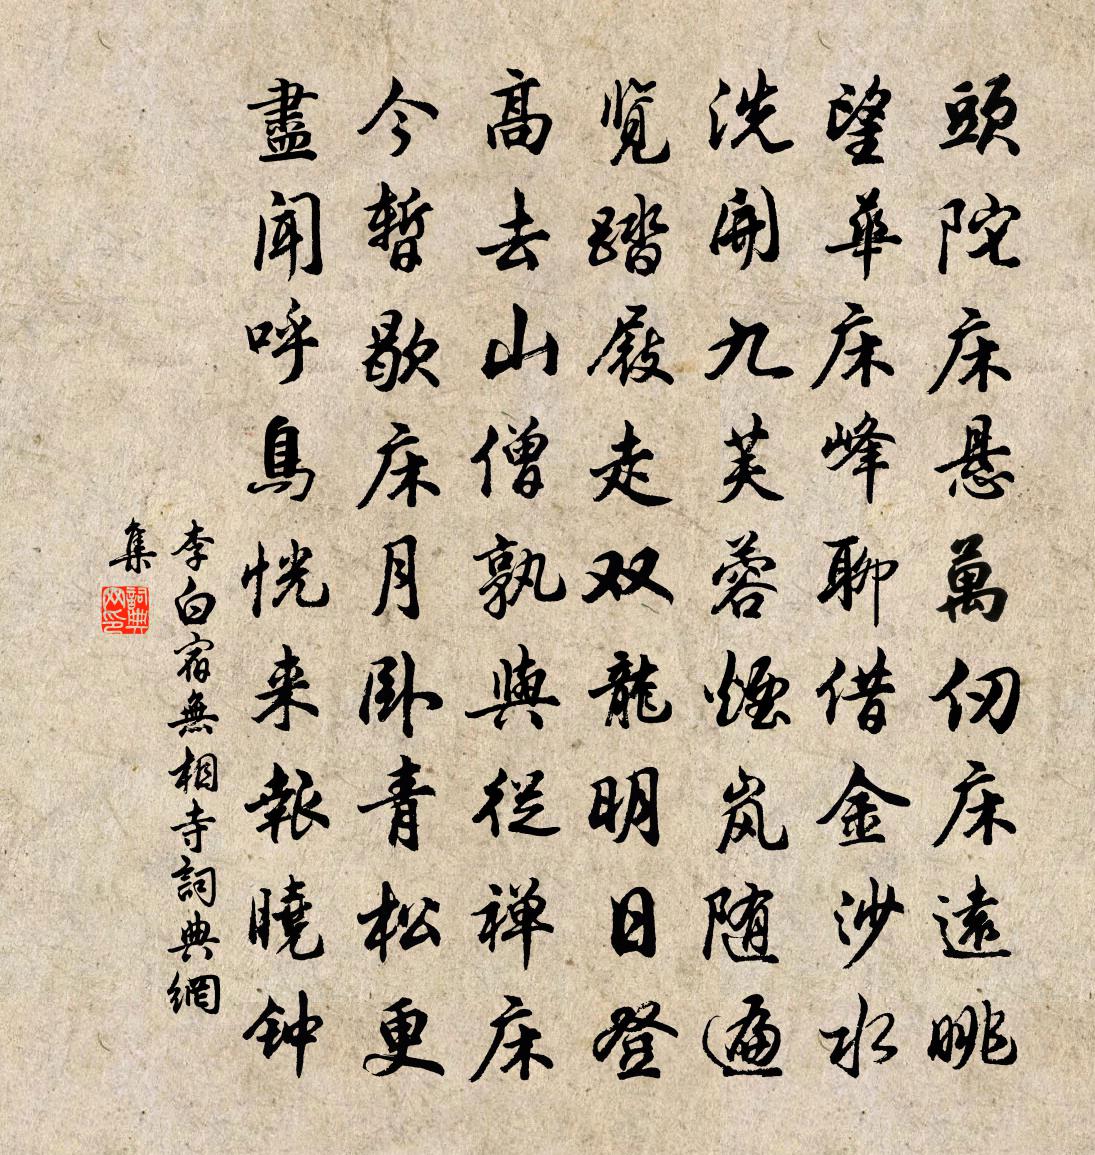 頭陀床悬萬仞床遠眺
望華床峰聊借金沙水
洗開九芙蓉煙岚随遍
览踏屐走双龍明日登
高去山僧孰與從禅床
今暫歇床月卧青松更
盡聞呼鳥恍来報曉钟
李白宿無相寺詞典網
集
詞典网印